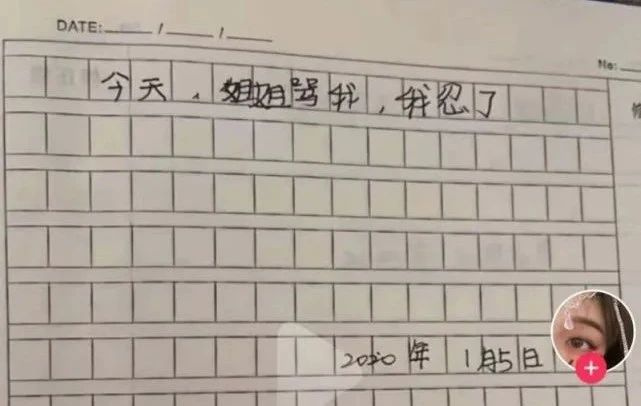 DATE: / /
No:
今天，姐姐骂我，我忍了
2020年1月5日